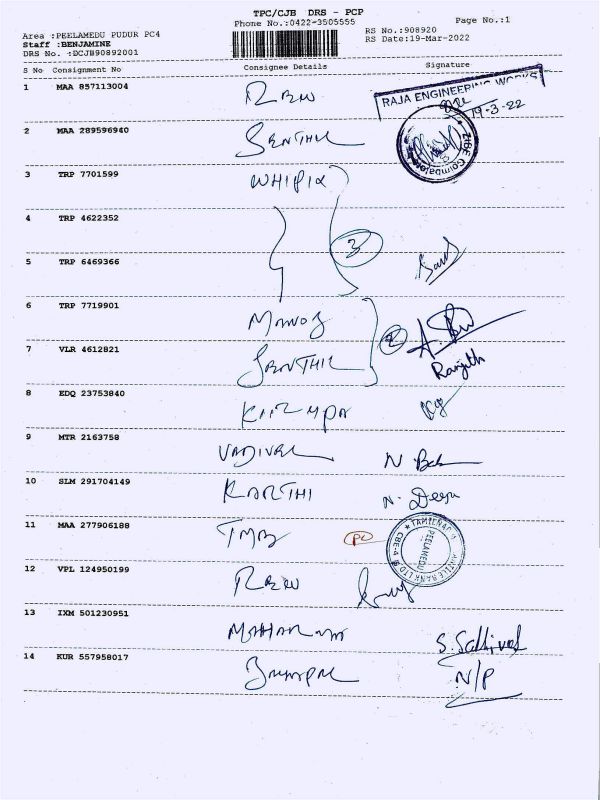 TPC/CJB DRS - PCP
Phone No.:0422-3505555
Page No.:1
Area :PEELAMEDU PUDUR PC4
Staff :BENJAMINE
DRS No. :DCJB90892001
RS No.:908920
RS Date:19-Mar-2022
S No Consignment No Consignee Details Signature
1 MAA 857113004
RAJA ENGINEERING WORKS
19-3-22
2 MAA 289596940 SENTHIL
Coimbatore
3 TRP 7701599
4 TRP 4622352
3
5 TRP 6469366
6 TRP 7719901 MANOJ
2
7 VLR 4612821 SENTHIL Ranjith
8 EDQ 23753840
9 MTR 2163758 VADIVEL N. 
10 SLM 291704149 KARTHI N. Deepa
11 MAA 277906188 TMB PC
PEELAMEDU
12 VPL 124950199
13 IXM 501230951
14 KUR 557958017 N/P